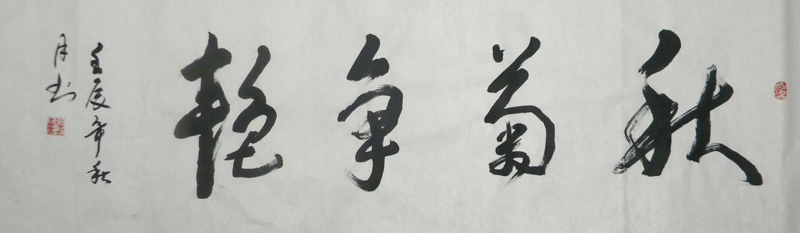 秋菊争艳
壬辰年秋
月书